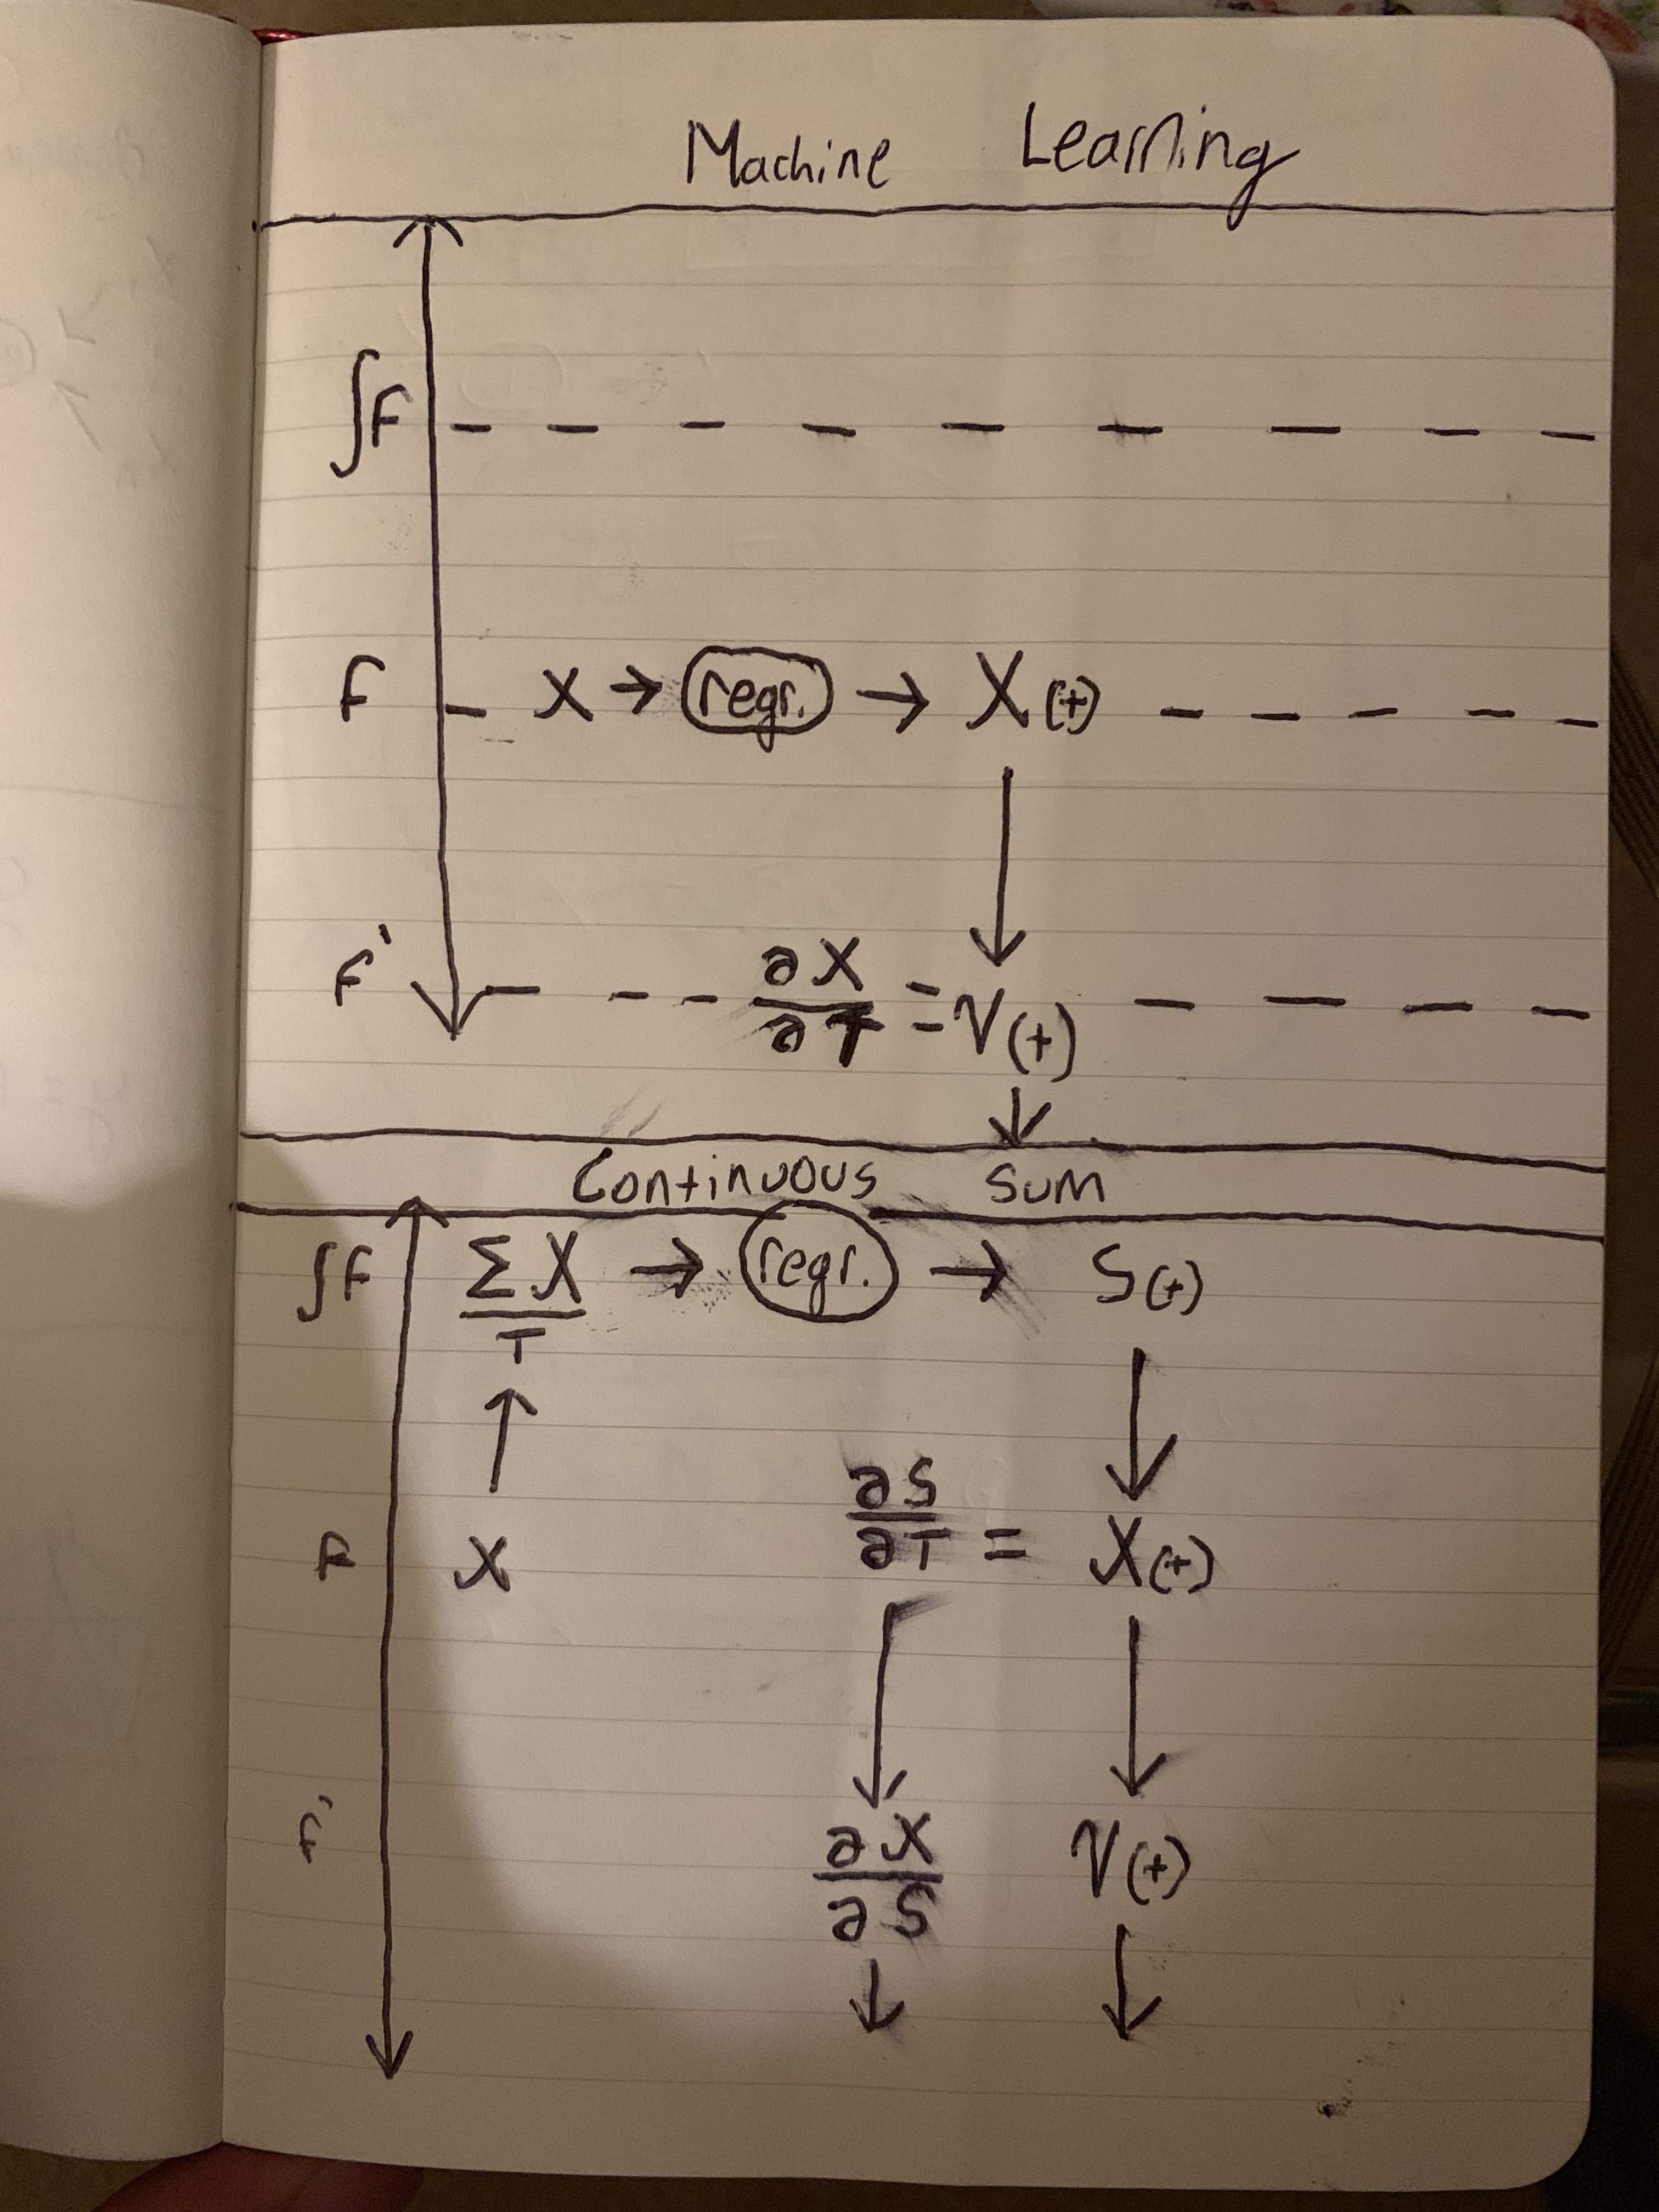 Machine Learning
∫F
F X → regr. → X(t)
↓
F' ∂X/∂T = V(t)
↓
Continuous Sum
∫F ΣX/T → regr. → S(t)
↑ ↓
F X ∂S/∂T = X(t)
↓ ↓
F' ∂X/∂S V(t)
↓ ↓